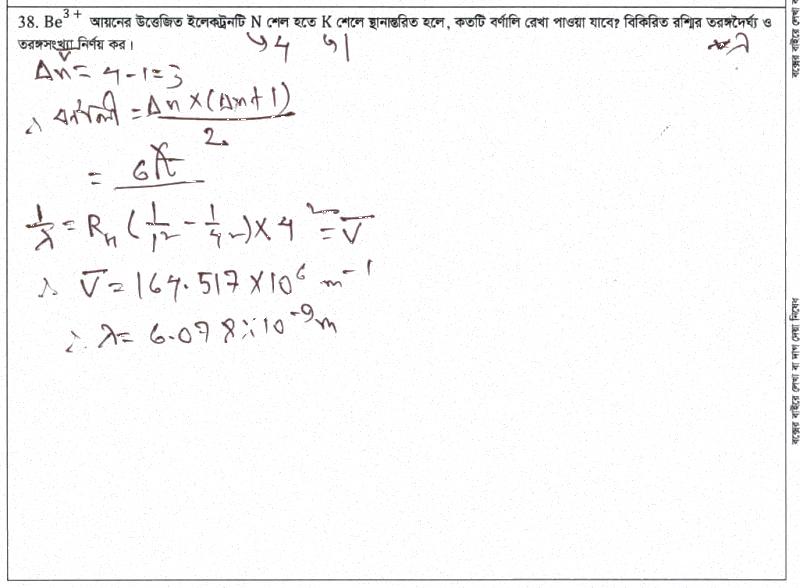 38. Be³⁺ আয়নের উত্তেজিত ইলেকট্রনটি N শেল হতে K শেলে স্থানান্তরিত হলে, কতটি বর্ণালি রেখা পাওয়া যাবে? বিকিরিত রশ্মির তরঙ্গদৈর্ঘ্য ও
তরঙ্গসংখ্যা নির্ণয় কর।
↳ 4 ↳ 1
Δn = 4 - 1 = 3
∴ বর্ণালী = Δn × (Δn + 1) / 2
= 6 টি
1/λ = R_H (1/1² - 1/4²) × 4² = V̅
∴ V̅ = 164.517 × 10⁶ m⁻¹
∴ λ = 6.078 × 10⁻⁹ m
বক্সের বাইরে লেখা বা দাগ দেয়া নিষেধ